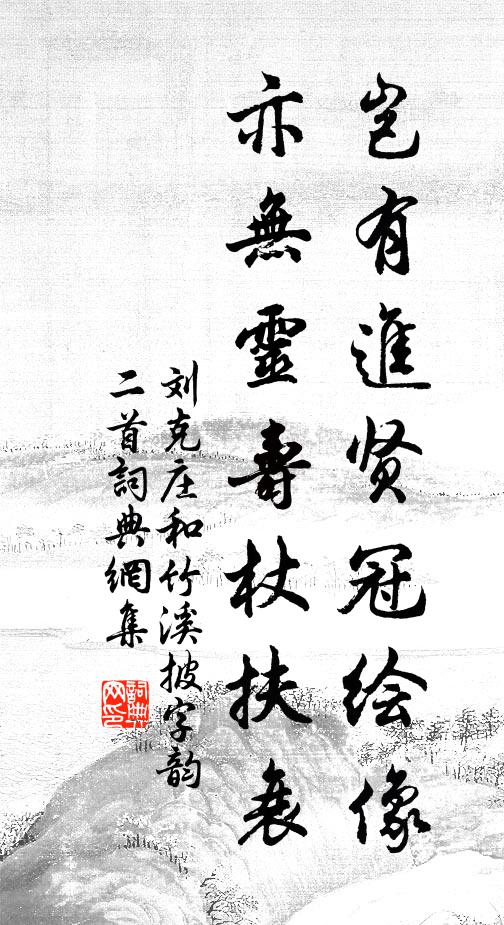 岂有進贤冠绘像
亦無靈壽杖扶衰
刘克庄和竹溪披字韵
二首詞典網集
詞典网印